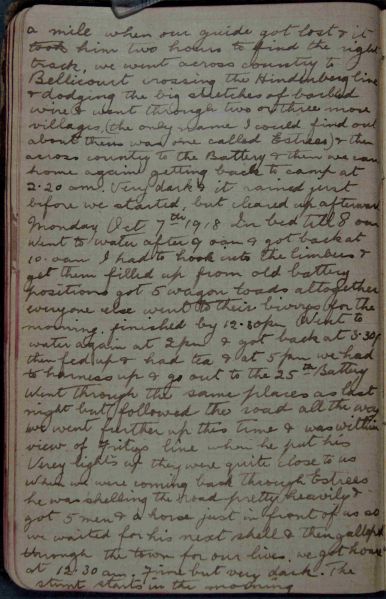 a mile when our guide got lost & it
took him two hours to find the right
track, we went across country to
Bellicourt crossing the Hindenberg line
& dodging the big stretches of barbed
wire & went through two or three more
villages, (the only name I could find out
about them was one called Estrees) & then
across country to the Battery & then we came
home again getting back to camp at
2.20 am. Very dark & it rained just
before we started, but cleared up afterward
Monday Oct 7th 1918 In bed till 8 am
Went to water after 9 am & got back at
10. am I had to hook into the limbers &
get them filled up from old battery
positions got 5 wagon loads altogether
everyone else went to their bivvies for the
morning. finished by 12.30pm Went to
water again at 2pm & got back at 3.30p
then fed up & had tea & at 5pm we had
to harness up & go out to the 25th Battery
Went through the same places as last
night but followed the road all the way
we went further up this time & was within
view of Fritzs line when he put his
Verey lights up they were quite close to us
When we were coming back through Estrees
he was shelling the road pretty heavily &
got 5 men & a horse just in front of us so
we waited for his next shell & then galloped
through the town for our lives. we got home
at 12.30 am. Fine but very dark. The
stunt starts in the morning